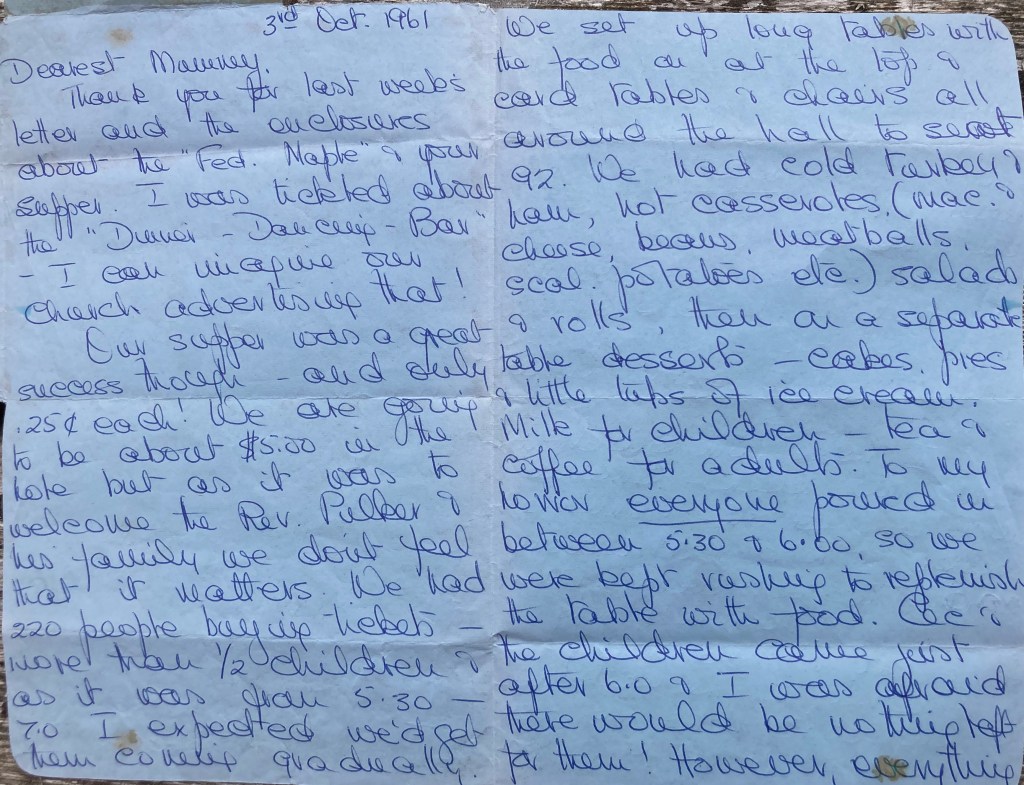 3rd Oct. 1961
Dearest Mummy,
Thank you for last week's
letter and the enclosures
about the "Fed. Naple" & your
supper. I was tickled about
the "Dinner - Dancing - Bar"
- I can imagine our
church advertising that!
Our supper was a great
success though - and only
.25¢ each! We are going
to be about $5.00 in the
hole but as it was to
welcome the Rev. Pulker &
his family we don't feel
that it matters. We had
220 people buying tickets -
more than 1/2 children &
as it was from 5.30 -
7.0 I expected we'd get
them coming gradually.
We set up long tables with
the food on at the top &
card tables & chairs all
around the hall to seat
92. We had cold turkey &
ham, hot casseroles, (mac. &
cheese, beans, meatballs,
scal. potatoes etc.) salads
& rolls, then on a separate
table desserts - cakes, pies
& little tubs of ice cream.
Milk for children - tea &
coffee for adults. To my
horror everyone poured in
between 5.30 & 6.00, so we
were kept rushing to replenish
the table with food. &
the children came just
after 6.0 & I was afraid
there would be nothing left
for them! However, everything